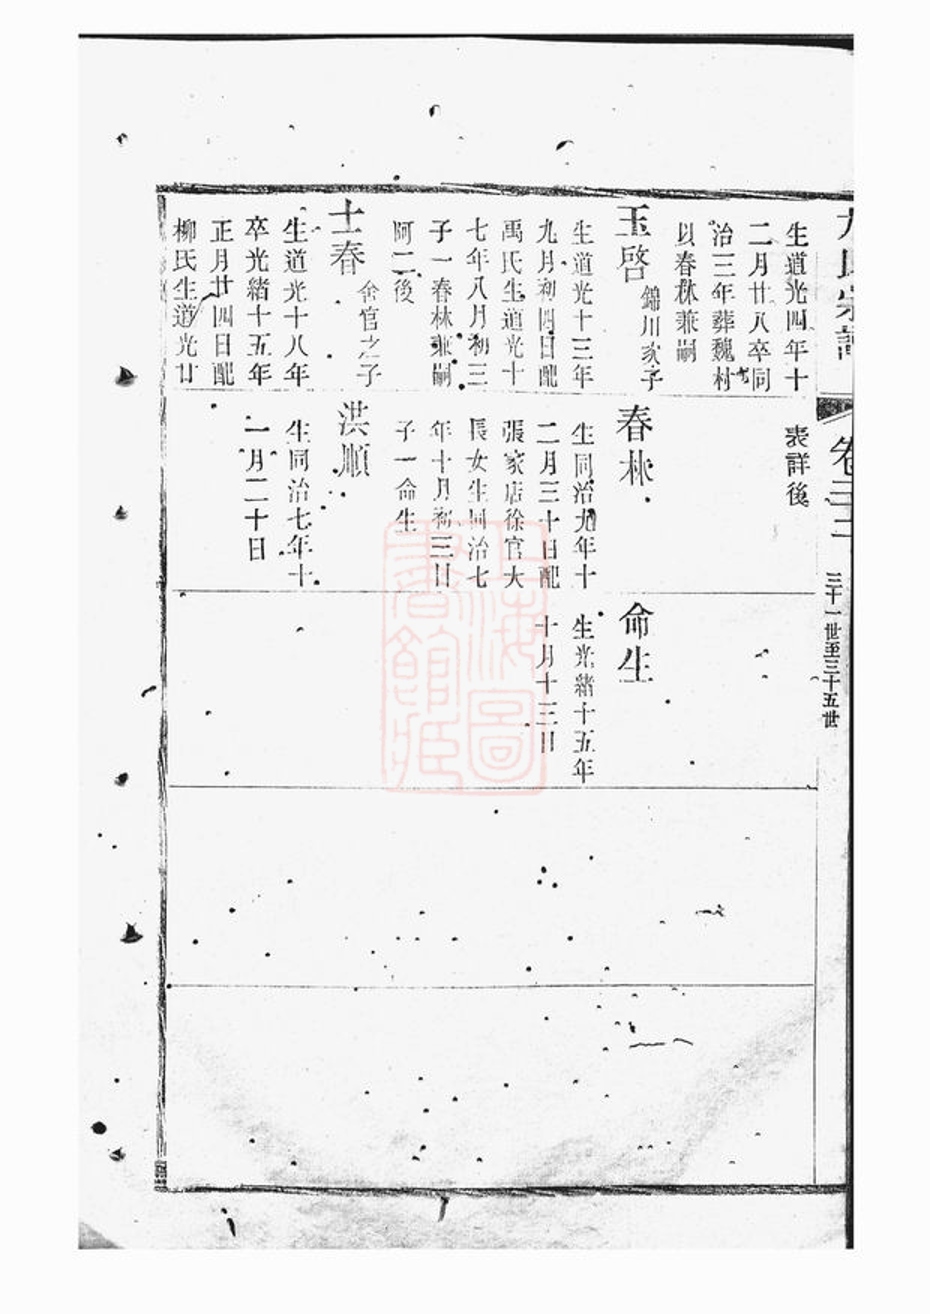 氏宗譜
卷三二
三十一世至三十五世
生道光四年十
二月廿八卒同
治三年葬魏村
以春林兼嗣
玉啓
錦川次子
生道光十三年
九月初四日配
禹氏生道光十
七年八月初三
子一春林兼嗣
阿二後
士春
金官之子
生道光十八年
卒光緒十五年
正月廿四日配
柳氏生道光廿
表詳後
春林
生同治九年十
二月三十日配
張家店徐官大
長女生同治七
年十月初三日
子一命生
洪順
生同治七年十
一月二十日
命生
生光緒十五年
十月十三日
上海圖書館藏